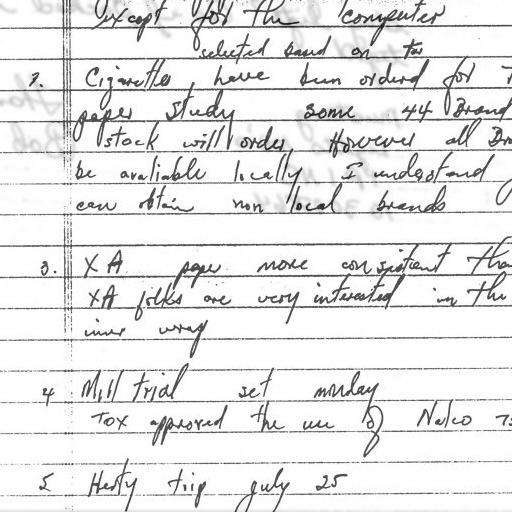 except for the computer
selected based on tar
2. Cigarettes have been orderd for
paper study some 44 Brand
stock will order, However all Br
be avaliable locally I understand
can obtain non local brands
3. XA paper more conspitient tha
XA folks are very interested in the
inner wrap
4 Mill trial set monday
Tox approved the use of Nalco 7
5 Hesty trip july 25